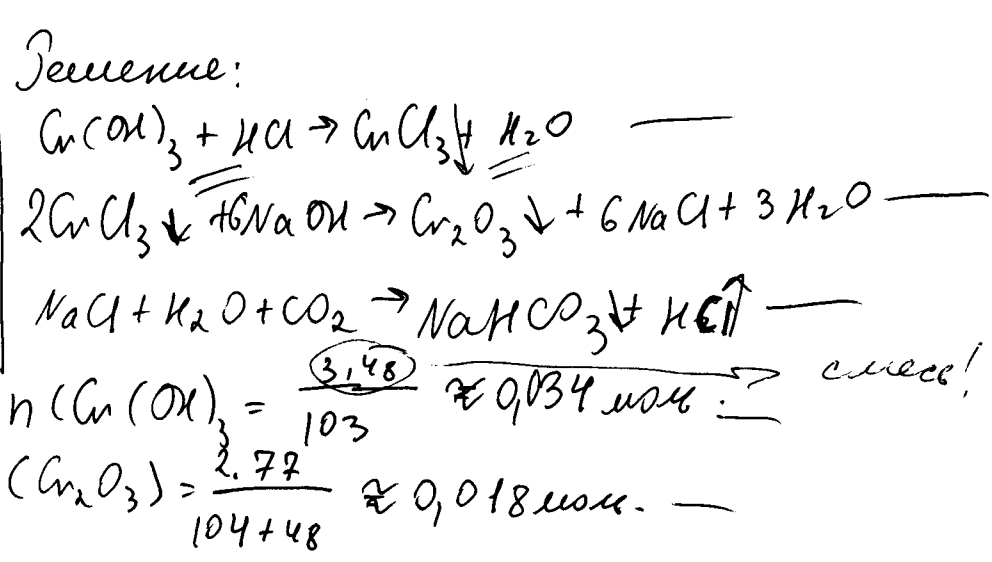 Решение:
Cr(OH)₃ + HCl → CrCl₃↓ + H₂O —
2CrCl₃↓ + 6NaOH → Cr₂O₃↓ + 6NaCl + 3H₂O —
NaCl + H₂O + CO₂ → NaHCO₃↓ + HCl↑ —
n(Cr(OH)₃ = 3,48/103 ≈ 0,034 моль. — смесь!
(Cr₂O₃) = 2.77/(104+48) ≈ 0,018 моль. —